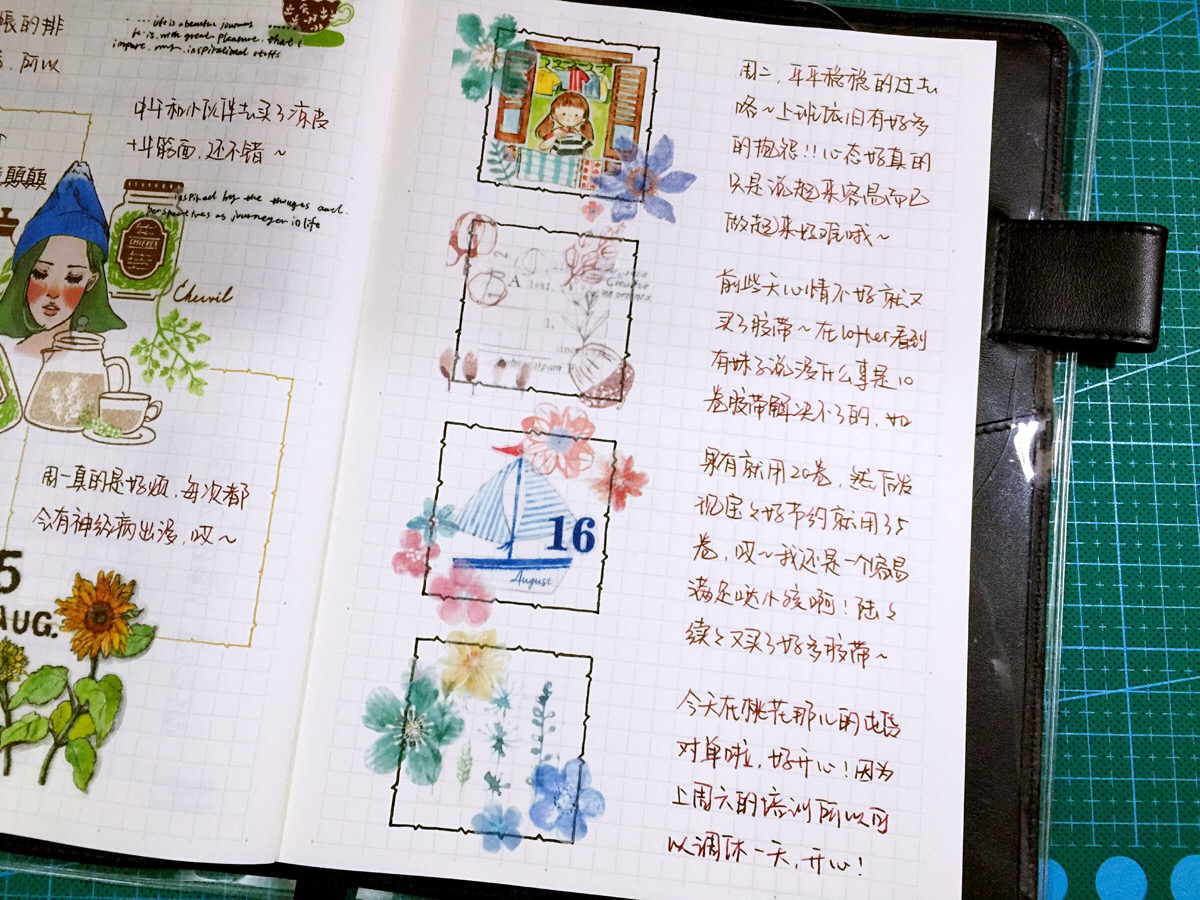 帐的排
所以
life is a beautiful journey
it is with great pleasure that i
impart my inspirational stuffs
中午和小伙伴去买了凉皮
牛筋面,还不错~
inspired by the thoughts and
perspectives as journeyer in life
Chervil
周一真的是好烦,每次都
会有神经病出没,哎~
5
AUG.
周二,平平稳稳的过去
咯~上班依旧有好多
的抱怨!!心态好真的
只是说起来容易而已
做起来好难哦~
前些天心情不好就又
买了胶带~在lofter看到
有妹子说没什么事是10
卷胶带解决不了的,如
果有就用20卷,然后发
现宝宝好节约就用35
卷,哎~我还是一个容易
满足哒小孩啊!陆々
续々又买了好多胶带~
1.
since
16
August
今天在桃花那儿的屯货
对单啦,好开心!因为
上周六的培训所以可
以调休一天,开心!